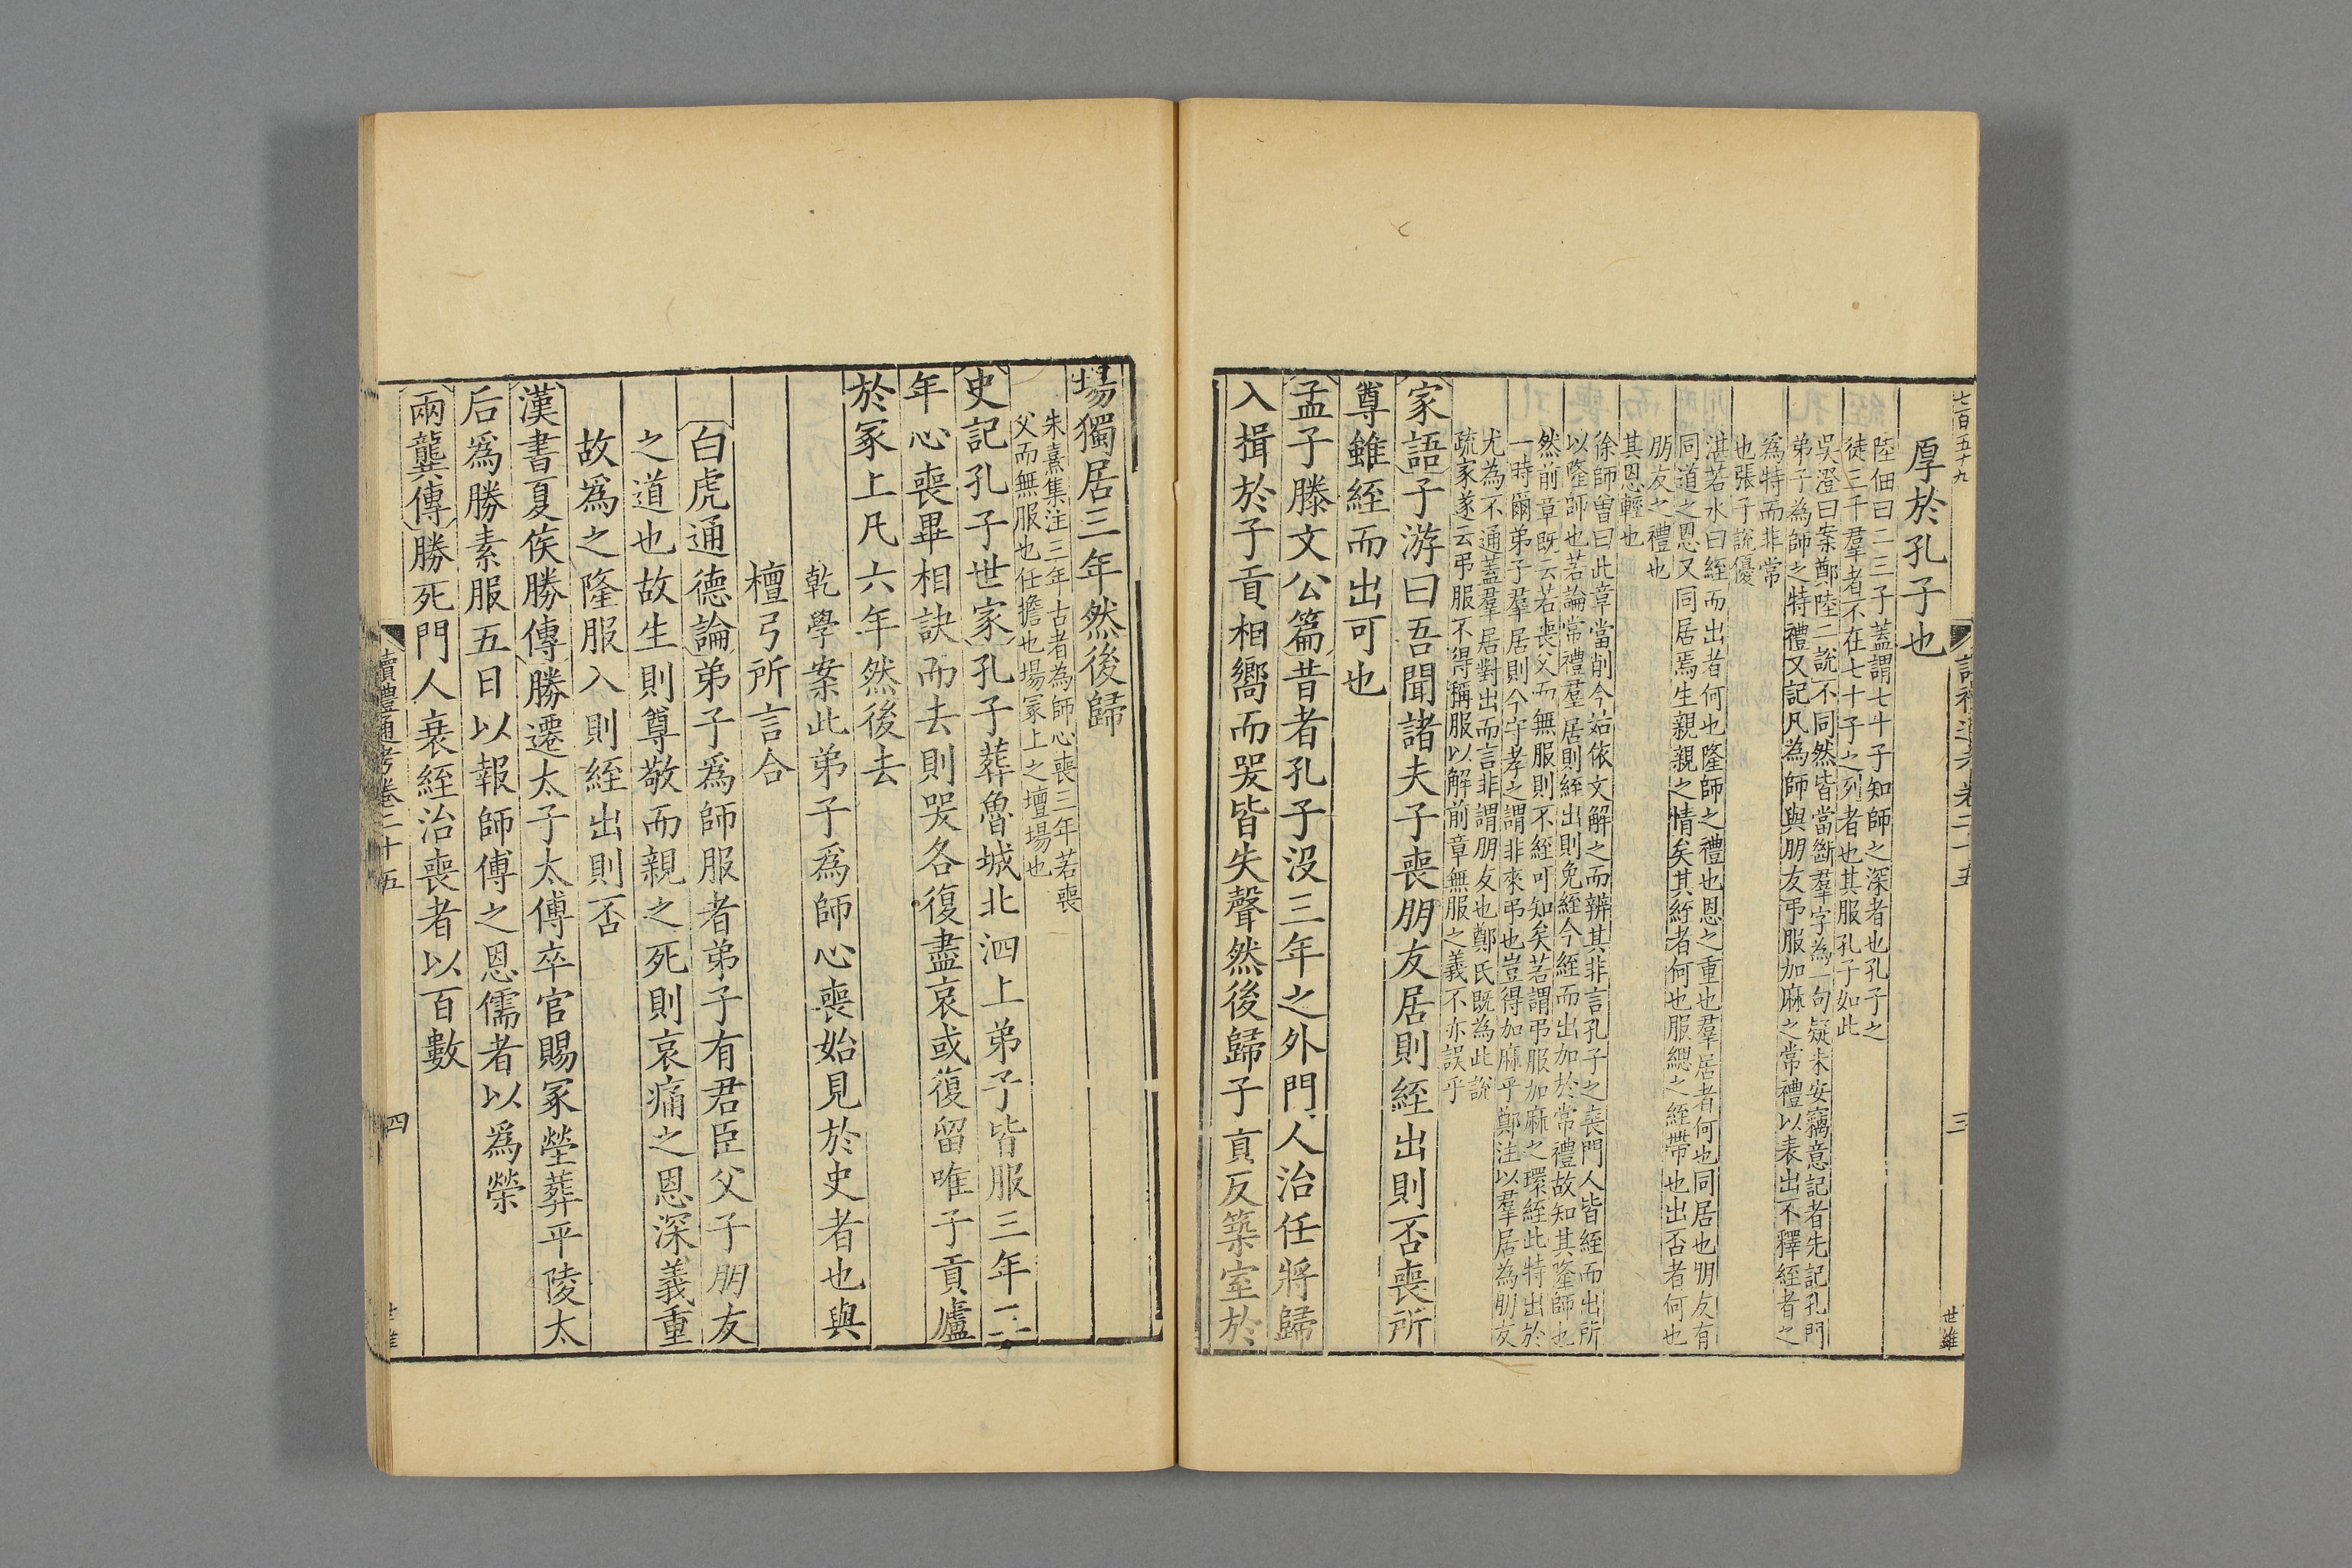 七百五十九
讀禮通考卷二十五
三
世雄
厚於孔子也
陸佃曰二三子蓋謂七十子知師之深者也孔子之
徒三千羣者不在七十子之列者也其服孔子如此
吳澄曰案鄭陸二說不同然皆當斷羣字為一句疑未安竊意記者先記孔門
弟子為師之特禮又記凡為師與朋友弔服加麻之常禮以表出不釋絰者之
為特而非常
也張子說優
湛若水曰絰而出者何也隆師之禮也恩之重也羣居者何也同居也朋友有
同道之恩又同居焉生親親之情矣其絰者何也服緦之絰帶也出否者何也
朋友之禮也
其恩輕也
徐師曾曰此章當削今姑依文解之而辨其非言孔子之喪門人皆絰而出所
以隆師也若論常禮羣居則絰出則免絰今絰而出加於常禮故知其隆師也
然前章既云若喪父而無服則不絰可知矣若謂弔服加麻之環絰此特出於
一時爾弟子羣居則今守孝之謂非來弔也豈得加麻乎鄭注以羣居為朋友
尤為不通蓋羣居對出而言非謂朋友也鄭氏既為此說
疏家遂云弔服不得稱服以解前章無服之義不亦誤乎
家語子游曰吾聞諸夫子喪朋友居則絰出則否喪所
尊雖絰而出可也
孟子滕文公篇昔者孔子沒三年之外門人治任將歸
入揖於子貢相嚮而哭皆失聲然後歸子貢反築室於
場獨居三年然後歸
朱熹集注三年古者為師心喪三年若喪
父而無服也任擔也場冢上之壇場也
史記孔子世家孔子葬魯城北泗上弟子皆服三年二三子
年心喪畢相訣而去則哭各復盡哀或復留唯子貢廬
於冢上凡六年然後去
乾學案此弟子爲師心喪始見於史者也與
檀弓所言合
白虎通德論弟子爲師服者弟子有君臣父子朋友
之道也故生則尊敬而親之死則哀痛之恩深義重
故爲之隆服入則絰出則否
漢書夏侯勝傳勝遷太子太傅卒官賜冢塋葬平陵太
后爲勝素服五日以報師傅之恩儒者以爲榮
兩龔傳勝死門人衰絰治喪者以百數
讀禮通考卷二十五
四
世雄